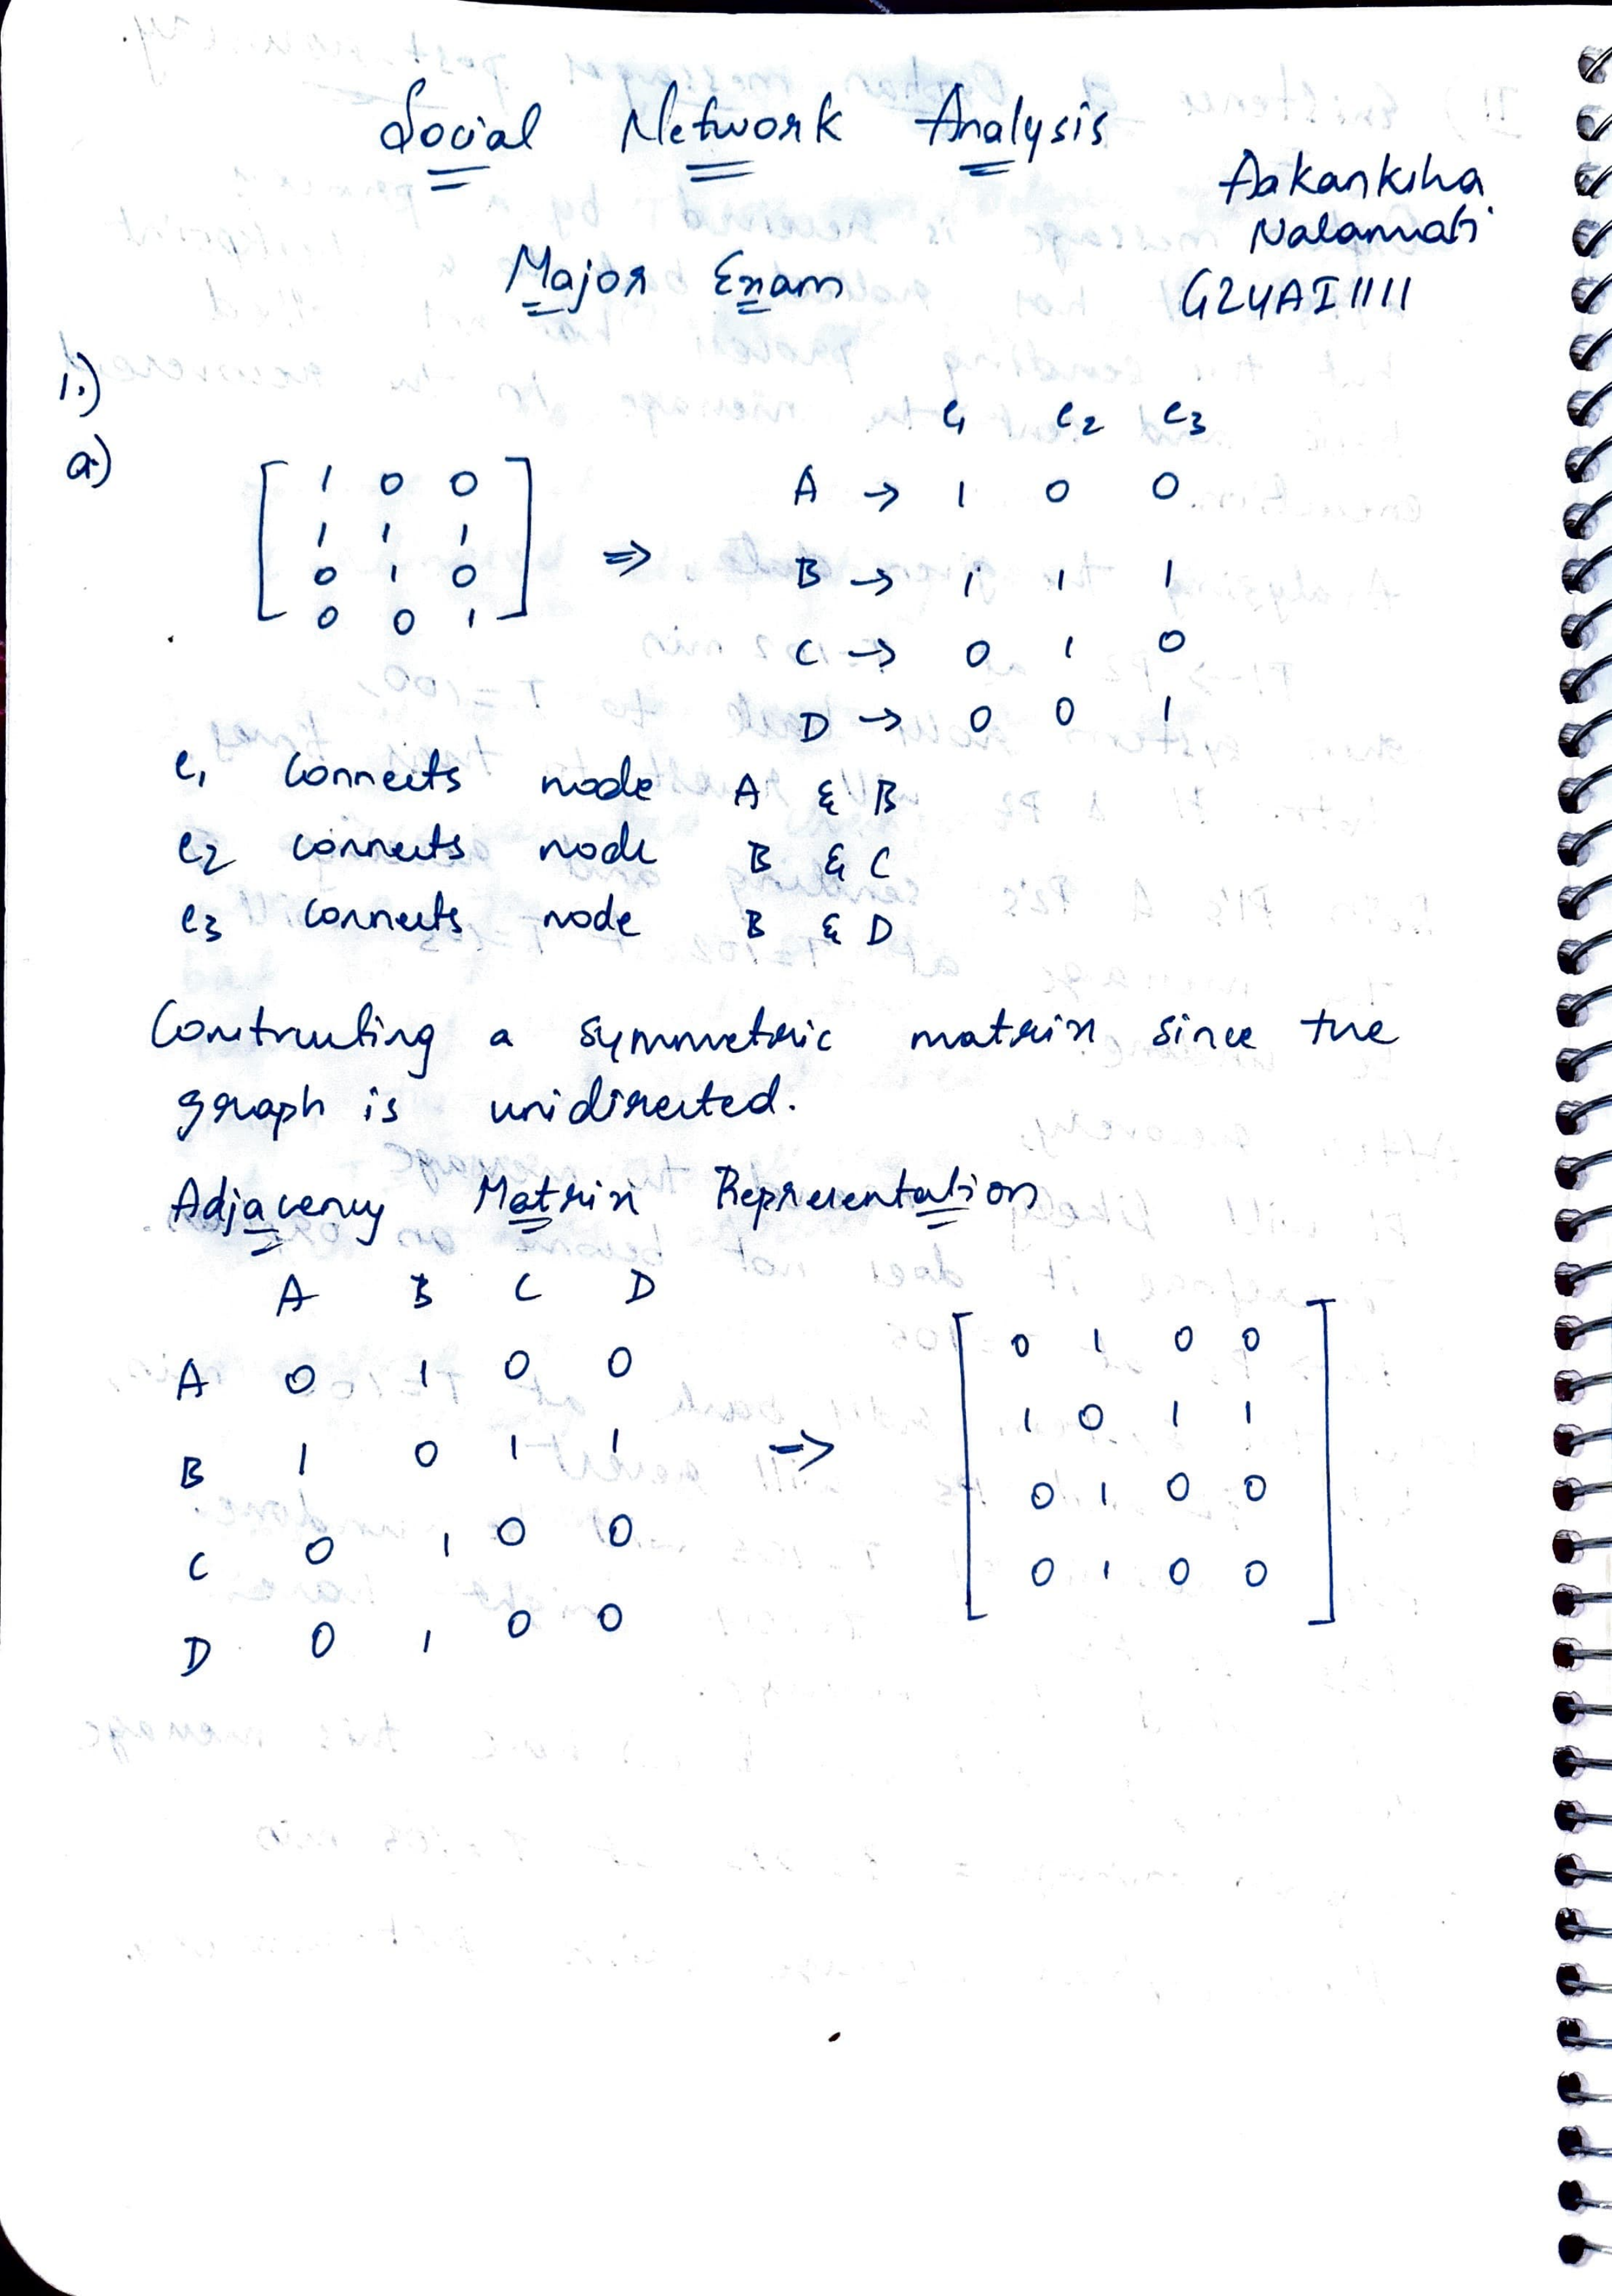 Social Network Analysis
Aakanksha
Nalamati
Major Exam
G24AI1111
1.)
a)
e1 e2 e3
[ 1 0 0 ] A → 1 0 0
1 1 1 ⇒ B → 1 1 1
0 1 0 C → 0 1 0
0 0 1 D → 0 0 1
e1 connects node A & B
e2 connects node B & C
e3 connects node B & D
Constructing a symmetric matrix since the
graph is unidirected.
Adjacency Matrix Representation
A B C D
A 0 1 0 0 [ 0 1 0 0 ]
B 1 0 1 1 → 1 0 1 1
C 0 1 0 0 0 1 0 0
D 0 1 0 0 0 1 0 0